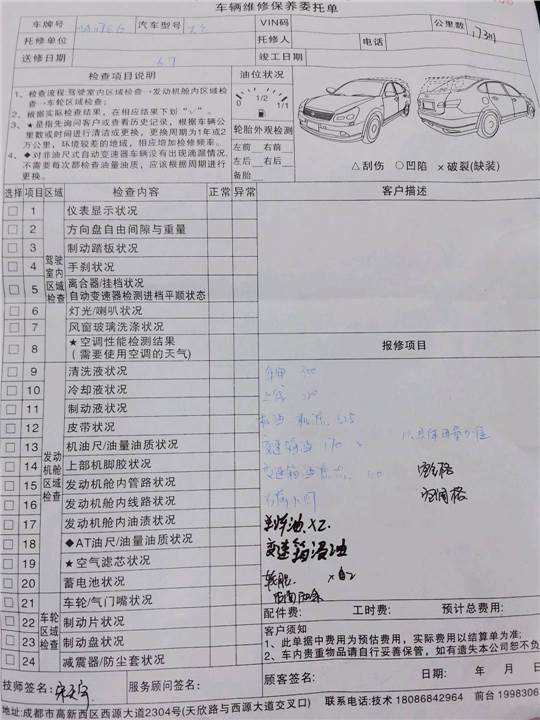 车辆维修保养委托单
车牌号 汽车型号 VIN码 公里数
托修单位 托修人 电话
送修日期 竣工日期
检查项目说明 油位状况
1、检查流程:驾驶室内区域检查→发动机舱内区域检
查→车轮区域检查;
2、根据实际检查结果，在相应结果下划“√”。
3、★是指先询问客户或查看历史记录，根据车辆公
里数或时间进行清洁或更换，更换周期为1年或2
万公里，环境较差的地域，相应增加检修频率。
4、◆对非油尺式自动变速器车辆没有出现滴漏情况，
不需要每次都检查油量油质，应该根据周期进行
更换。
0 1/2 1/1
轮胎外观检测
左前 右前
左后 右后
备胎
△刮伤 ○凹陷 ×破裂(缺装)
选择 项目 区域 检查内容 正常 异常 客户描述
驾驶室内区域检查
1 仪表显示状况
2 方向盘自由间隙与重量
3 制动踏板状况
4 手刹状况
5 离合器/挂档状况
自动变速器检测进档平顺状态
6 灯光/喇叭状况
7 风窗玻璃洗涤状况
8 ★空调性能检测结果
(需要使用空调的天气)
报修项目
发动机舱区域检查
9 清洗液状况
10 冷却液状况
11 制动液状况
12 皮带状况
13 机油尺/油量油质状况
14 上部机脚胶状况
15 发动机舱内管路状况
16 发动机舱内线路状况
17 发动机舱内油渍状况
18 ◆AT油尺/油量油质状况
19 ★空气滤芯状况
20 蓄电池状况
车轮区域检查
21 车轮/气门嘴状况
22 制动片状况
23 制动盘状况
24 减震器/防尘套状况
机油 机滤
变速箱油
变速箱
配件费: 工时费: 预计总费用:
客户须知
1、此单据中费用为预估费用，实际费用以结算单为准;
2、车内贵重物品请自行妥善保管，如有遗失本公司恕不负
技师签名: 服务顾问签名: 顾客签名: 日期: 年 月 日
地址:成都市高新西区西源大道2304号(天欣路与西源大道交叉口) 联系电话:技术 18086842964 前台 1998306